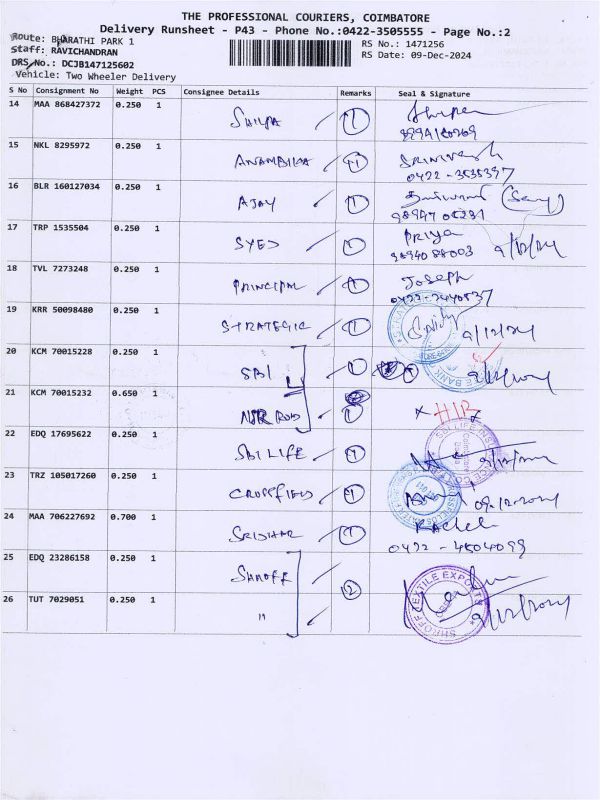 THE PROFESSIONAL COURIERS, COIMBATORE
Delivery Runsheet - P43 - Phone No.:0422-3505555 - Page No.:2
Route: BHARATHI PARK 1
RS No.: 1471256
Staff: RAVICHANDRAN
RS Date: 09-Dec-2024
DRS No.: DCJB147125602
Vehicle: Two Wheeler Delivery
S No Consignment No Weight PCS Consignee Details Remarks Seal & Signature
14 MAA 868427372 0.250 1 SHILPA 1
15 NKL 8295972 0.250 1 1 Srinivash
0422 - 3535397
16 BLR 160127034 0.250 1 AJAY 1
17 TRP 1535504 0.250 1 SYED 1 Priya
98940 88003 9/12/24
18 TVL 7273248 0.250 1 PRINCIPAL 1 Joseph
0422-2440537
19 KRR 50098480 0.250 1 STRATEGIC 1 9/12/24
20 KCM 70015228 0.250 1 SBI 1 9/12/2024
21 KCM 70015232 0.650 1 NSR ROAD 1
22 EDQ 17695622 0.250 1 SBI LIFE 1 9/12/2024
SBI LIFE INSURANCE CO
23 TRZ 105017260 0.250 1 CROSSFIELD 1 09.12.2024
24 MAA 706227692 0.700 1 SRIDHAR 1 Rachel
0422 - 4504099
25 EDQ 23286158 0.250 1 SHROFF 2
SHROFF TEXTILE EXPORTS
26 TUT 7029051 0.250 1 " 9/12/2024